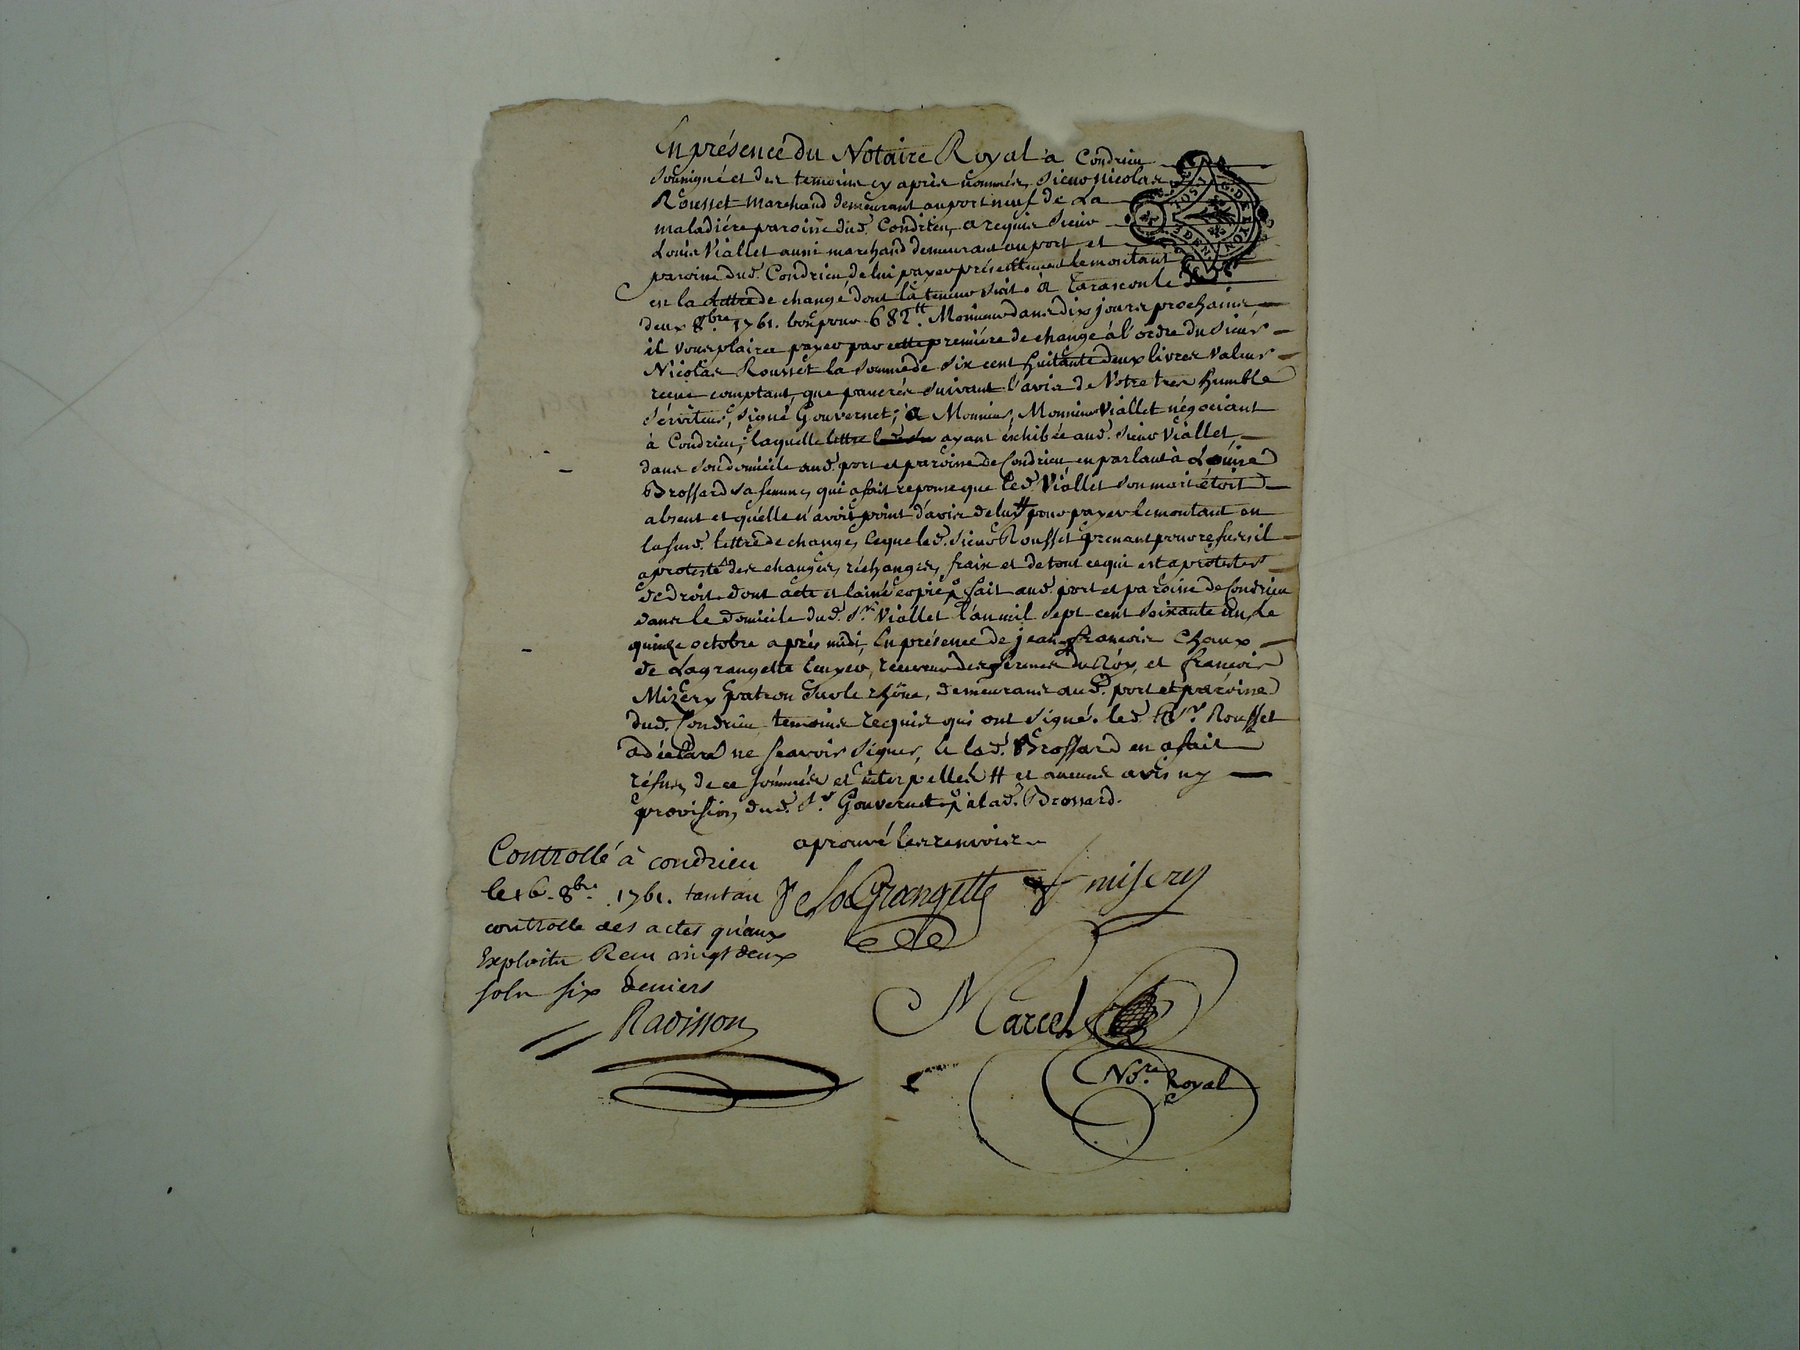 En présence du Notaire Royal a Condrieu
soussigné et des temoins cy après nommés, Sieur Nicolas
Rousset marchand demeurant au port neuf de La
maladiére paroisse dud. Condrieu, a requis Sieur
Louis Viallet aussi marchand demeurant au port et
paroisse dud. Condrieu de lui payer présentement le montant
en la lettre de change dont la teneur suit. a Tarascon le
deux 8bre 1761. bon pour 682tt. Monsieur dans dix jours prochains
il vous plaira payer par cette premiére de change à l'ordre du Sieur
Nicolas Rousset la somme de six cent huitante deux livres valeur
reçue comptant, que passerés suivant l'avis de Votre tres humble
serviteur, signé Gouvernet; a Monsieur, Monsieur Viallet négociant
à Condrieu; laquelle lettre ayant éxhibée aud. Sieur Viallet,
dans son domicile aud. port et paroisse de Condrieu en parlant à Louise
Brossard sa femme, qui a fait reponse que led. Viallet son mari étoit
absent et qu'elle n'avoit point d'avis de luy # pour payer le montant en
la sud. lettre de change, ce que led. Sieur Rousset prenant pour refus, il
a protesté des changes, réchanges, frais et de tout ce qui est a protester
de droit. dont acte et laissé copie fait aud. port et paroisse de Condrieu
dans le domicile dud. Sr. Viallet l'an mil sept cent soixante un, le
quinze octobre après midi, En présence de jean françois Chaux
de Lagrangette Ecuyer, receveur des fermes du Roy, et françois
Mizery patron sur le rhône, demeurans aud. port et paroisse
dud. Condrieu temoins requis qui ont signé. led. Sr. Rousset
a déclaré ne sçavoir signer, et lad. Brossard en a fait
réfus, de ce sommés et interpellés # et aucuns avis ny
provision, dud. Sr. Gouvernet, à lad. Brossard.
aprouvé les renvois
Controllé à condrieu
le 16. 8bre. 1761. tant au
controlle des actes qu'aux
Exploits Reçu vingt deux
sols six deniers
Radisson
De la Grangette f misery
Marcel
Nore. Royal